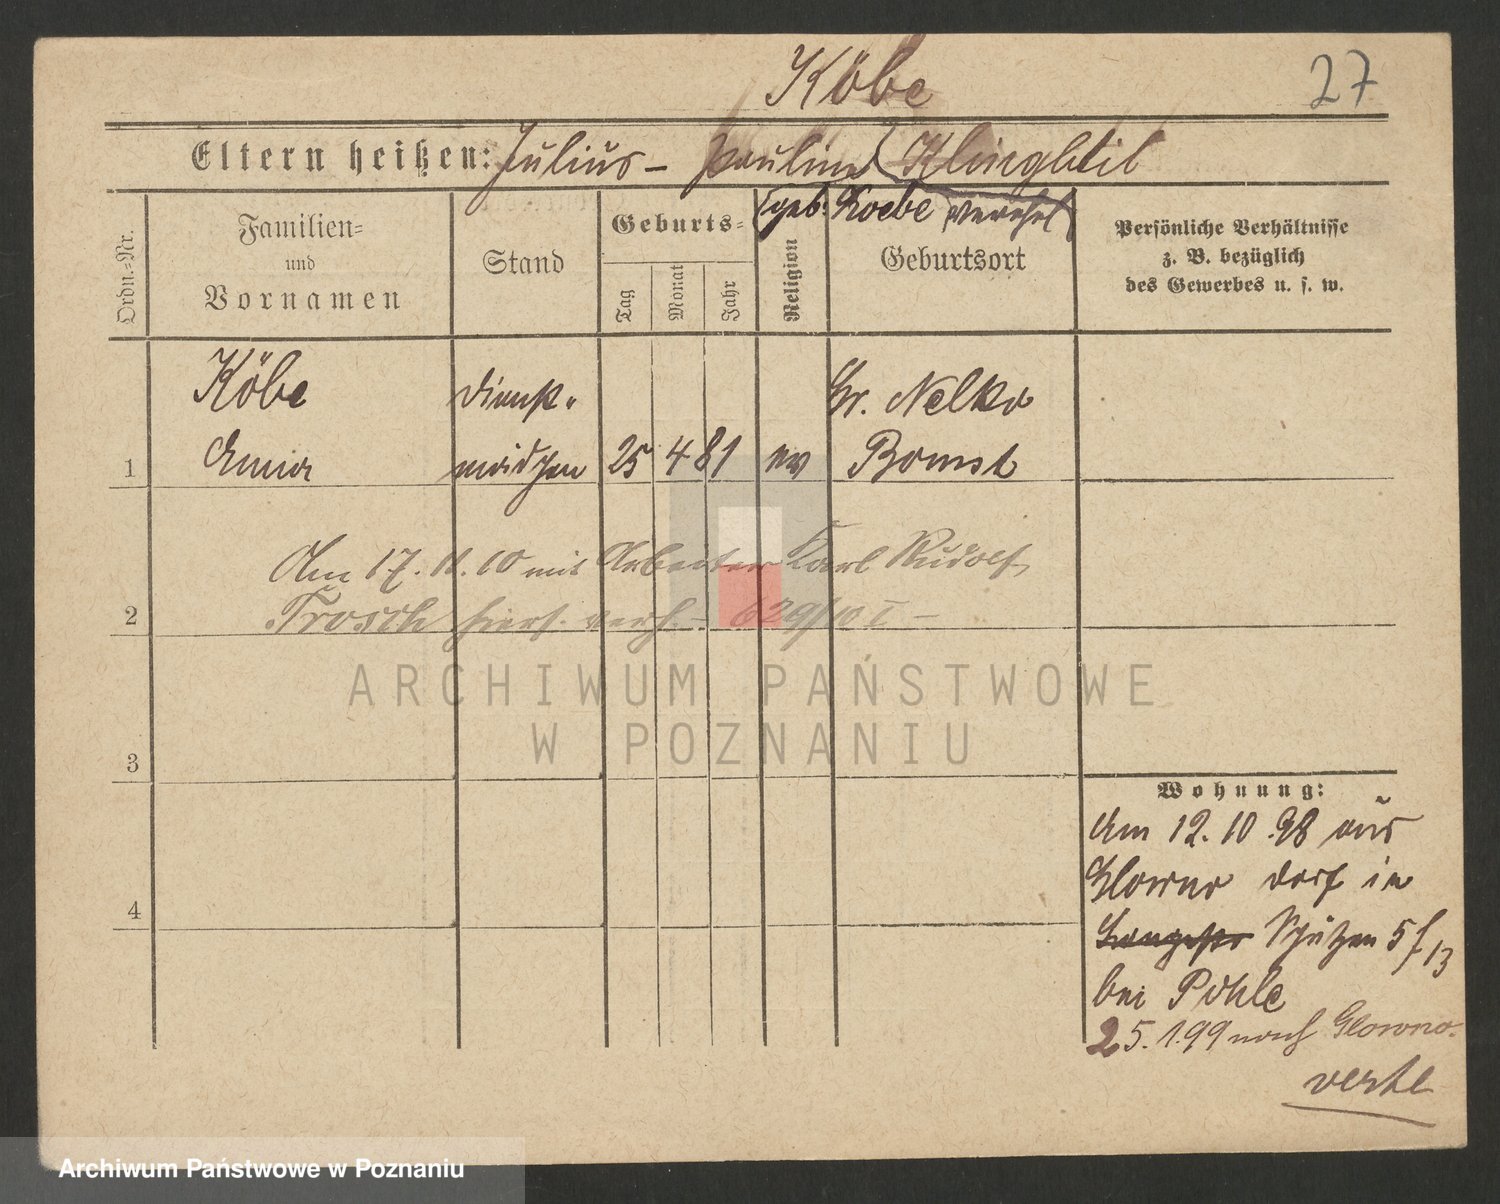 Köbe
27
Eltern heißen: Julius – Pauline Klinghbeil
(geb. Koebe verehel)
Ordn.-Nr.
Familien-
und
Vornamen
Stand
Geburts-
Tag
Monat
Jahr
Religion
Geburtsort
Persönliche Verhältnisse
z. B. bezüglich
des Gewerbes u. s. w.
Köbe Dienst- Gr. Nelke
1 Anna mädchen 25 4 81 ev Bomst
Am 17. 11. 10 mit Arbeiter Karl Rudolf
2 Trosch hiers. verh. – 629/10 I –
ARCHIWUM PAŃSTWOWE
W POZNANIU
3
Wohnung:
Am 12. 10. 98 aus
Glowno Dorf in
4
Schützen 5 f 13
bei Pohle
25. 1. 99 nach Glowno.
verte
Archiwum Państwowe w Poznaniu